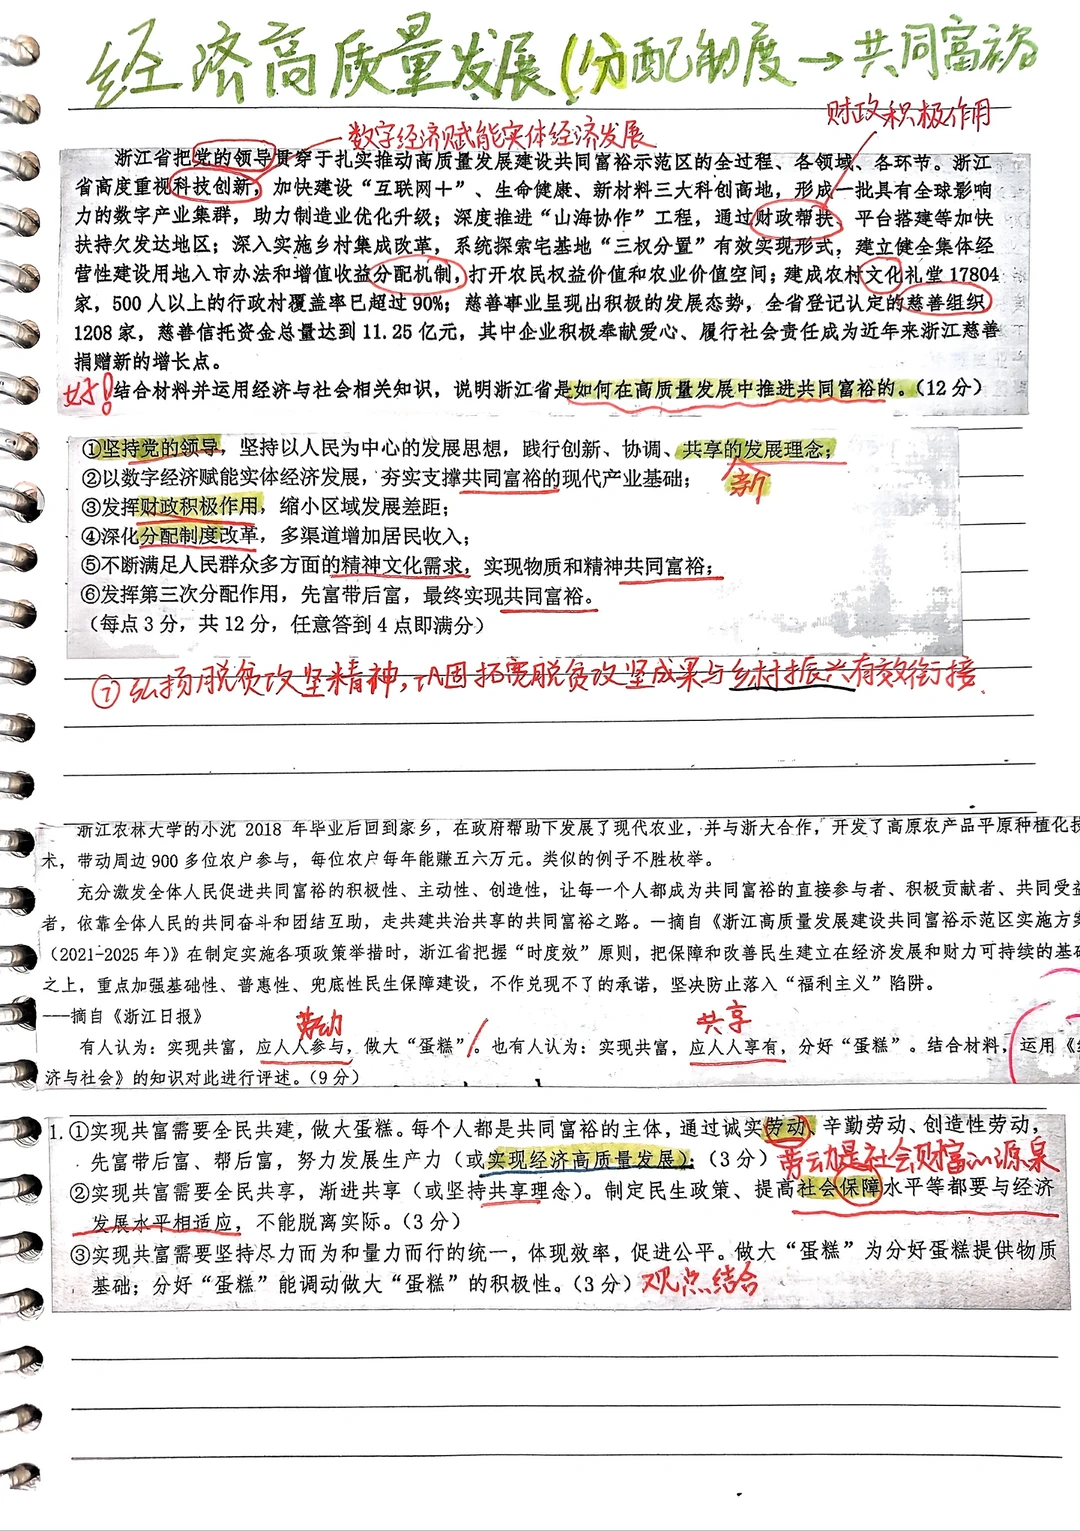 经济高质量发展(分配制度→共同富裕
数字经济赋能实体经济发展
财政积极作用
浙江省把党的领导贯穿于扎实推动高质量发展建设共同富裕示范区的全过程、各领域、各环节。浙江
省高度重视科技创新，加快建设“互联网＋”、生命健康、新材料三大科创高地，形成一批具有全球影响
力的数字产业集群，助力制造业优化升级；深度推进“山海协作”工程，通过财政帮扶、平台搭建等加快
扶持欠发达地区；深入实施乡村集成改革，系统探索宅基地“三权分置”有效实现形式，建立健全集体经
营性建设用地入市办法和增值收益分配机制，打开农民权益价值和农业价值空间；建成农村文化礼堂 17804
家，500 人以上的行政村覆盖率已超过 90%；慈善事业呈现出积极的发展态势，全省登记认定的慈善组织
1208 家，慈善信托资金总量达到 11.25 亿元，其中企业积极奉献爱心、履行社会责任成为近年来浙江慈善
捐赠新的增长点。
结合材料并运用经济与社会相关知识，说明浙江省是如何在高质量发展中推进共同富裕的。（12 分）
①坚持党的领导，坚持以人民为中心的发展思想，践行创新、协调、共享的发展理念；
新
②以数字经济赋能实体经济发展，夯实支撑共同富裕的现代产业基础；
③发挥财政积极作用，缩小区域发展差距；
④深化分配制度改革，多渠道增加居民收入；
⑤不断满足人民群众多方面的精神文化需求，实现物质和精神共同富裕；
⑥发挥第三次分配作用，先富带后富，最终实现共同富裕。
（每点 3 分，共 12 分，任意答到 4 点即满分）
⑦弘扬脱贫攻坚精神，巩固拓宽脱贫攻坚成果与乡村振兴有效衔接.
浙江农林大学的小沈 2018 年毕业后回到家乡，在政府帮助下发展了现代农业，并与浙大合作，开发了高原农产品平原种植化技
术，带动周边 900 多位农户参与，每位农户每年能赚五六万元。类似的例子不胜枚举。
充分激发全体人民促进共同富裕的积极性、主动性、创造性，让每一个人都成为共同富裕的直接参与者、积极贡献者、共同受益
者，依靠全体人民的共同奋斗和团结互助，走共建共治共享的共同富裕之路。—摘自《浙江高质量发展建设共同富裕示范区实施方案
（2021-2025 年）》在制定实施各项政策举措时，浙江省把握“时度效”原则，把保障和改善民生建立在经济发展和财力可持续的基础
之上，重点加强基础性、普惠性、兜底性民生保障建设，不作兑现不了的承诺，坚决防止落入“福利主义”陷阱。
——摘自《浙江日报》
劳动
共享
有人认为：实现共富，应人人参与，做大“蛋糕”。也有人认为：实现共富，应人人享有，分好“蛋糕”。结合材料，运用《经
济与社会》的知识对此进行评述。（9 分）
1.①实现共富需要全民共建，做大蛋糕。每个人都是共同富裕的主体，通过诚实劳动、辛勤劳动、创造性劳动，
先富带后富、帮后富，努力发展生产力（或实现经济高质量发展）；（3 分）
劳动是社会财富的源泉
②实现共富需要全民共享，渐进共享（或坚持共享理念）。制定民生政策、提高社会保障水平等都要与经济
发展水平相适应，不能脱离实际。（3 分）
③实现共富需要坚持尽力而为和量力而行的统一，体现效率，促进公平。做大“蛋糕”为分好蛋糕提供物质
基础；分好“蛋糕”能调动做大“蛋糕”的积极性。（3 分）
观点结合